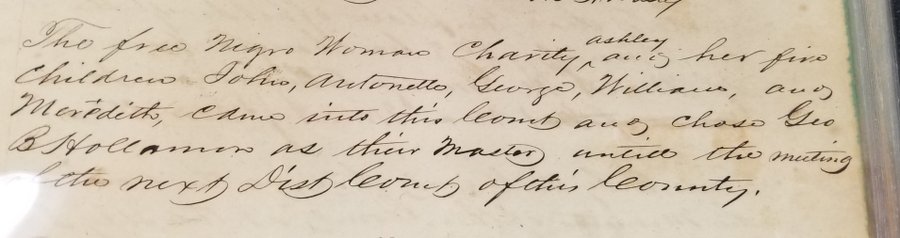 The free Nigro Woman Charity ashley and her five
Children John, Antonette, George, William, and
Meredith, came into this Court and chose Geo
B Hollamon as their Master untill the meeting
of the next Dist Court of this County.